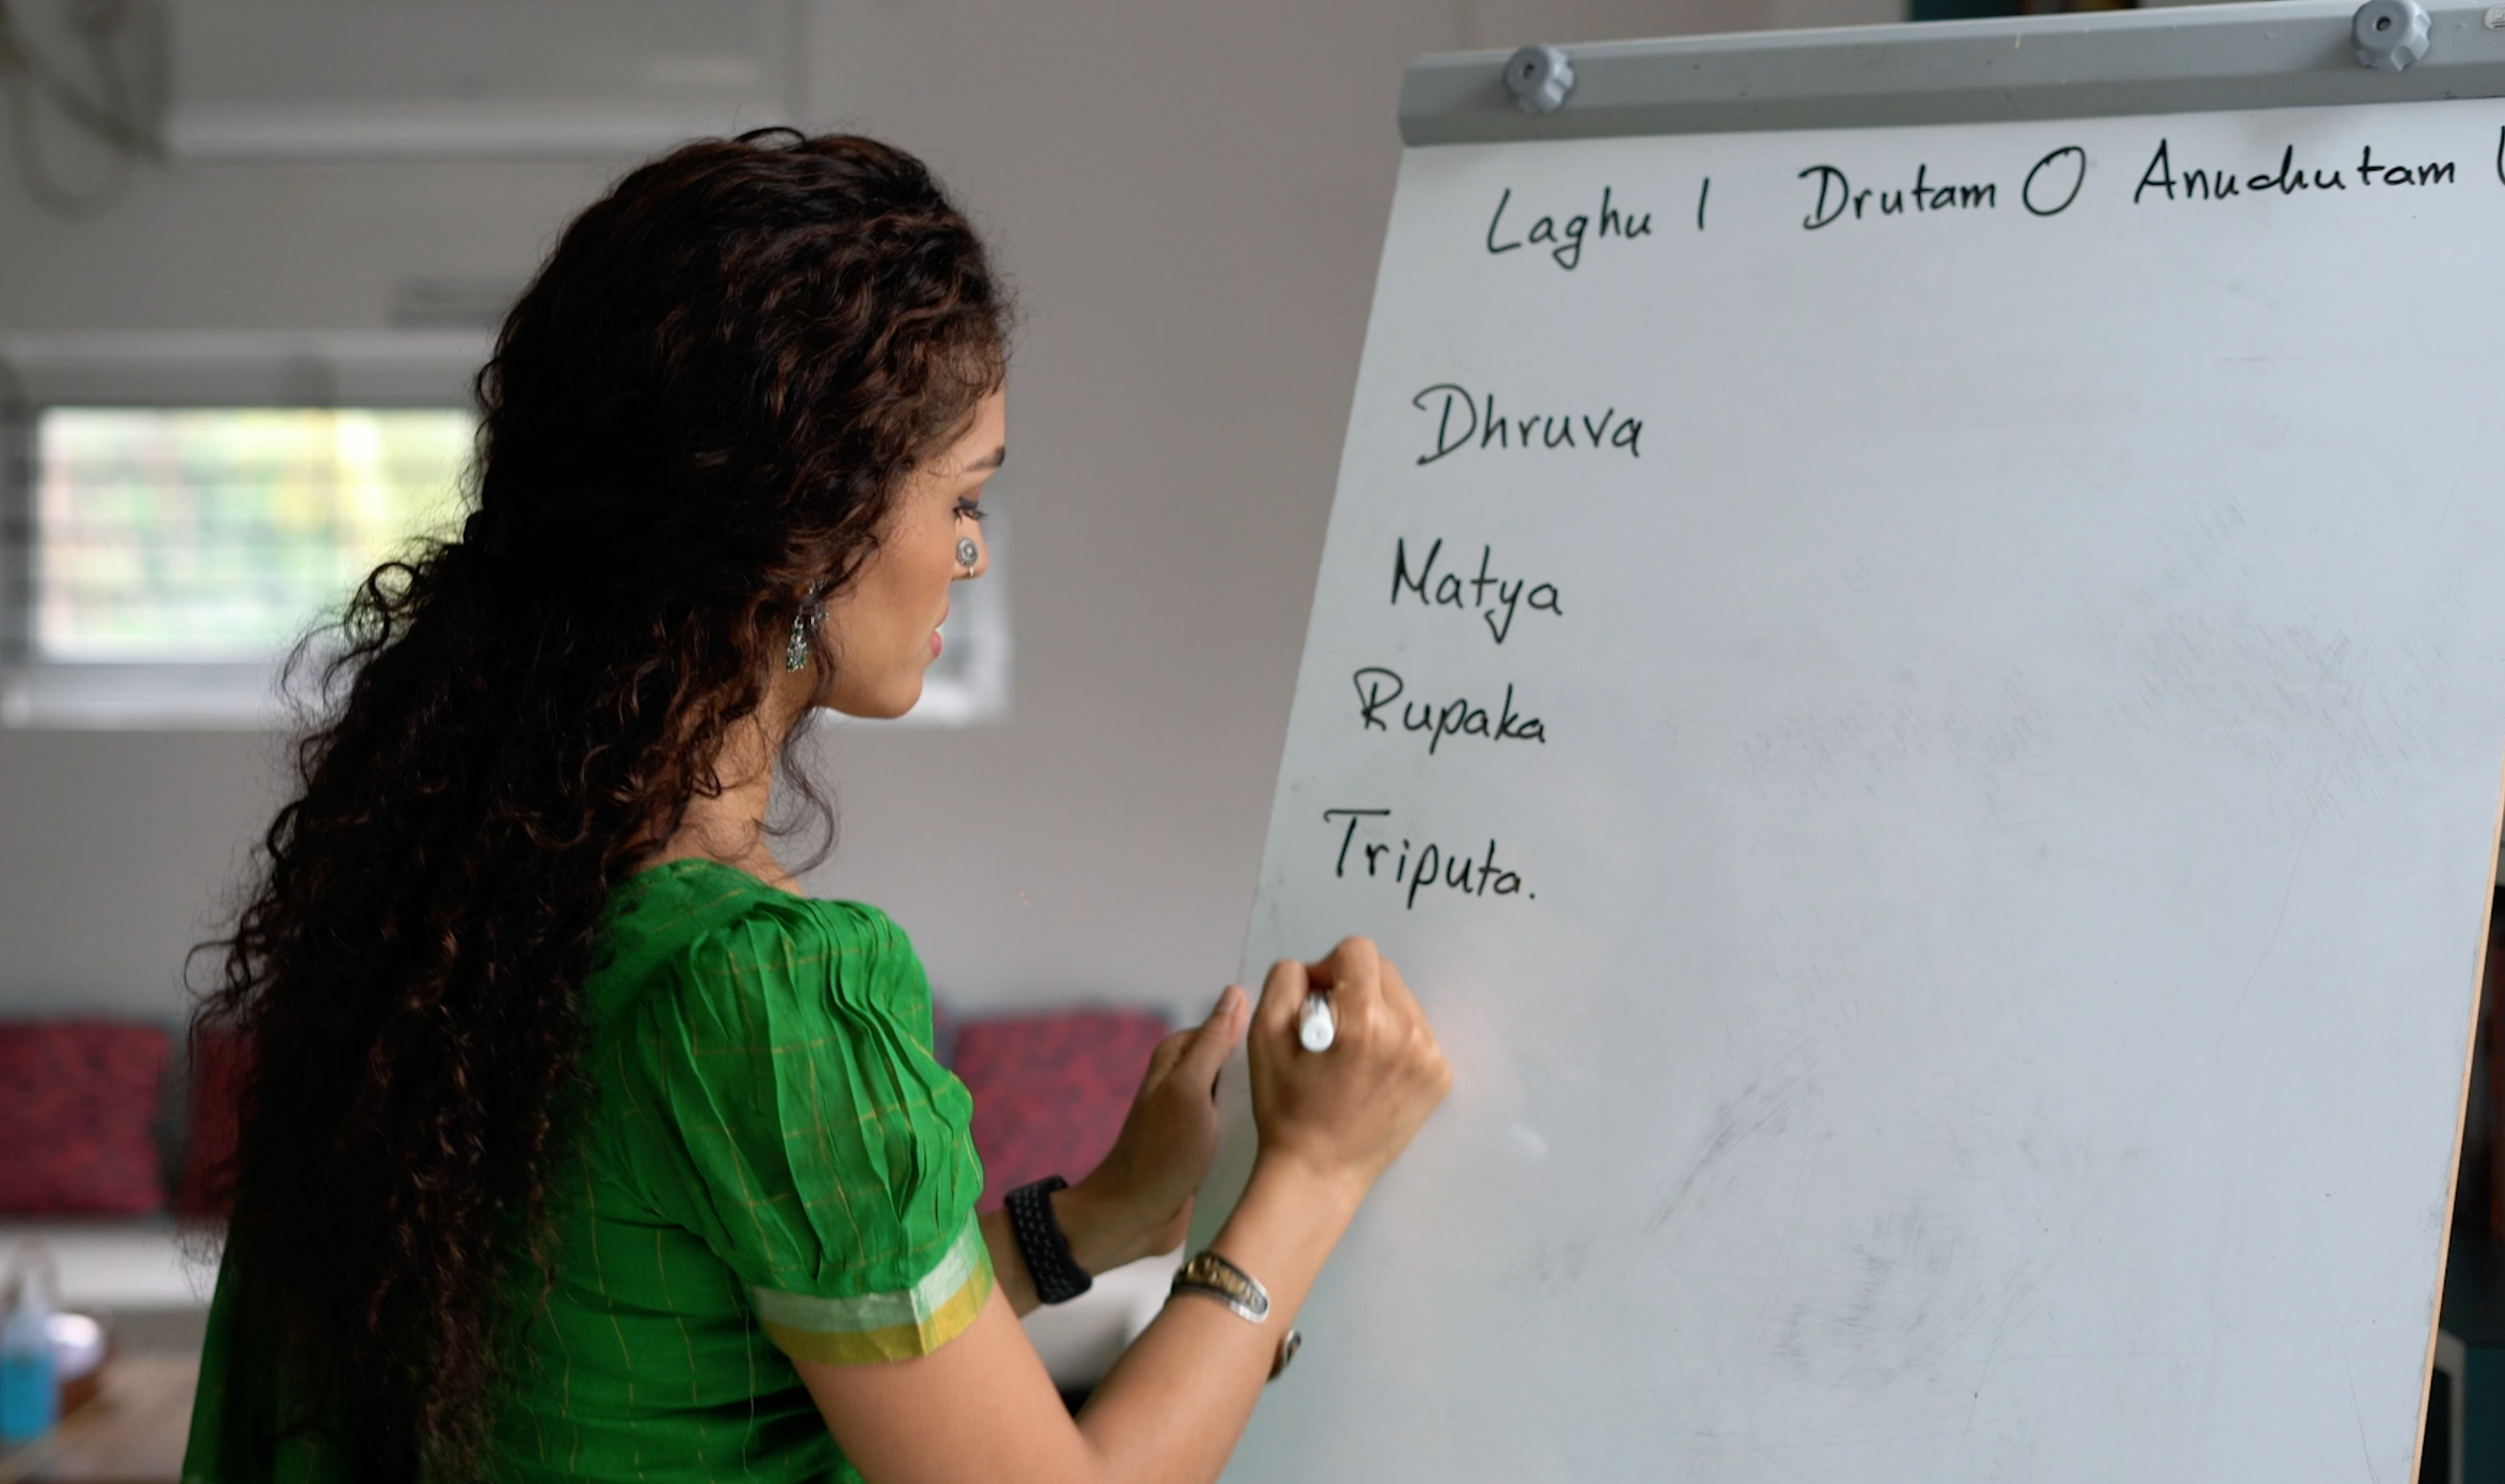 Laghu | Drutam O Anudrutam U
Dhruva
Matya
Rupaka
Triputa.